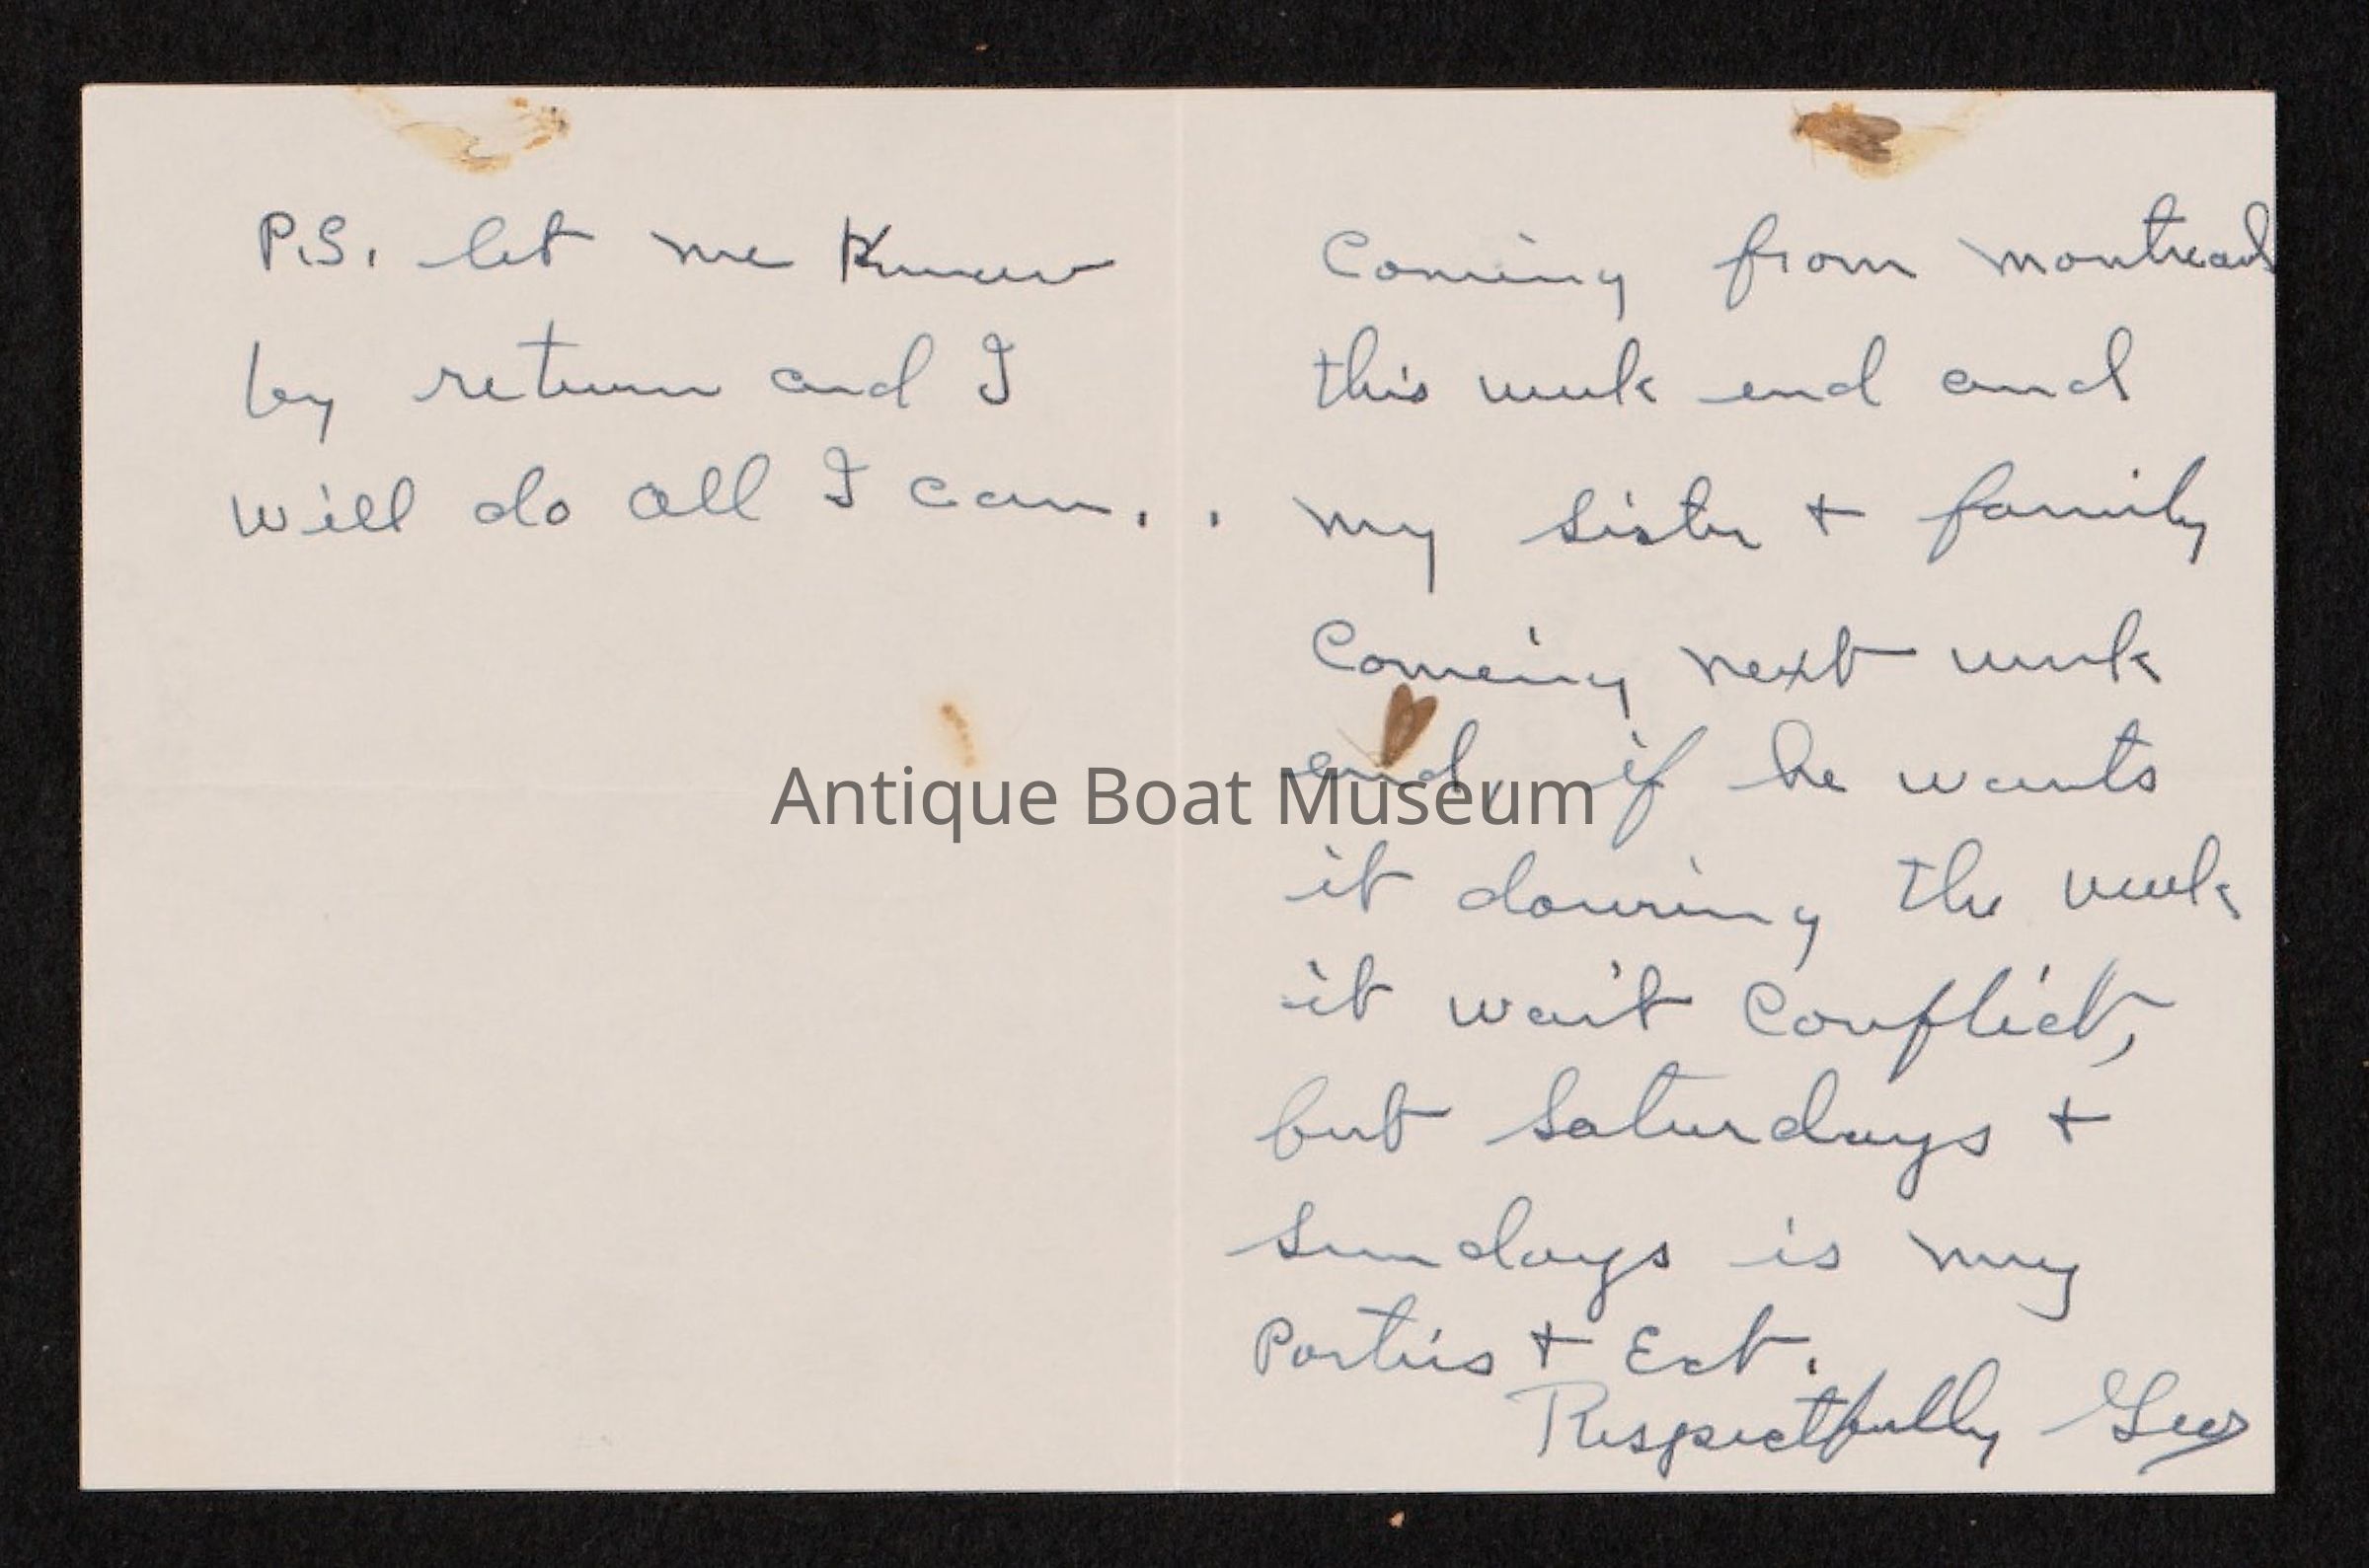 P.S. let me Know
by return and I
will do all I can. .
Coming from montreal
this week end and
my sister + family
Comeing next week
end, if he wants
it douring the week
it won't Conflict,
but Saturdays +
Sundays is my
Parties + Ect.
Respectfully Geo
Antique Boat Museum